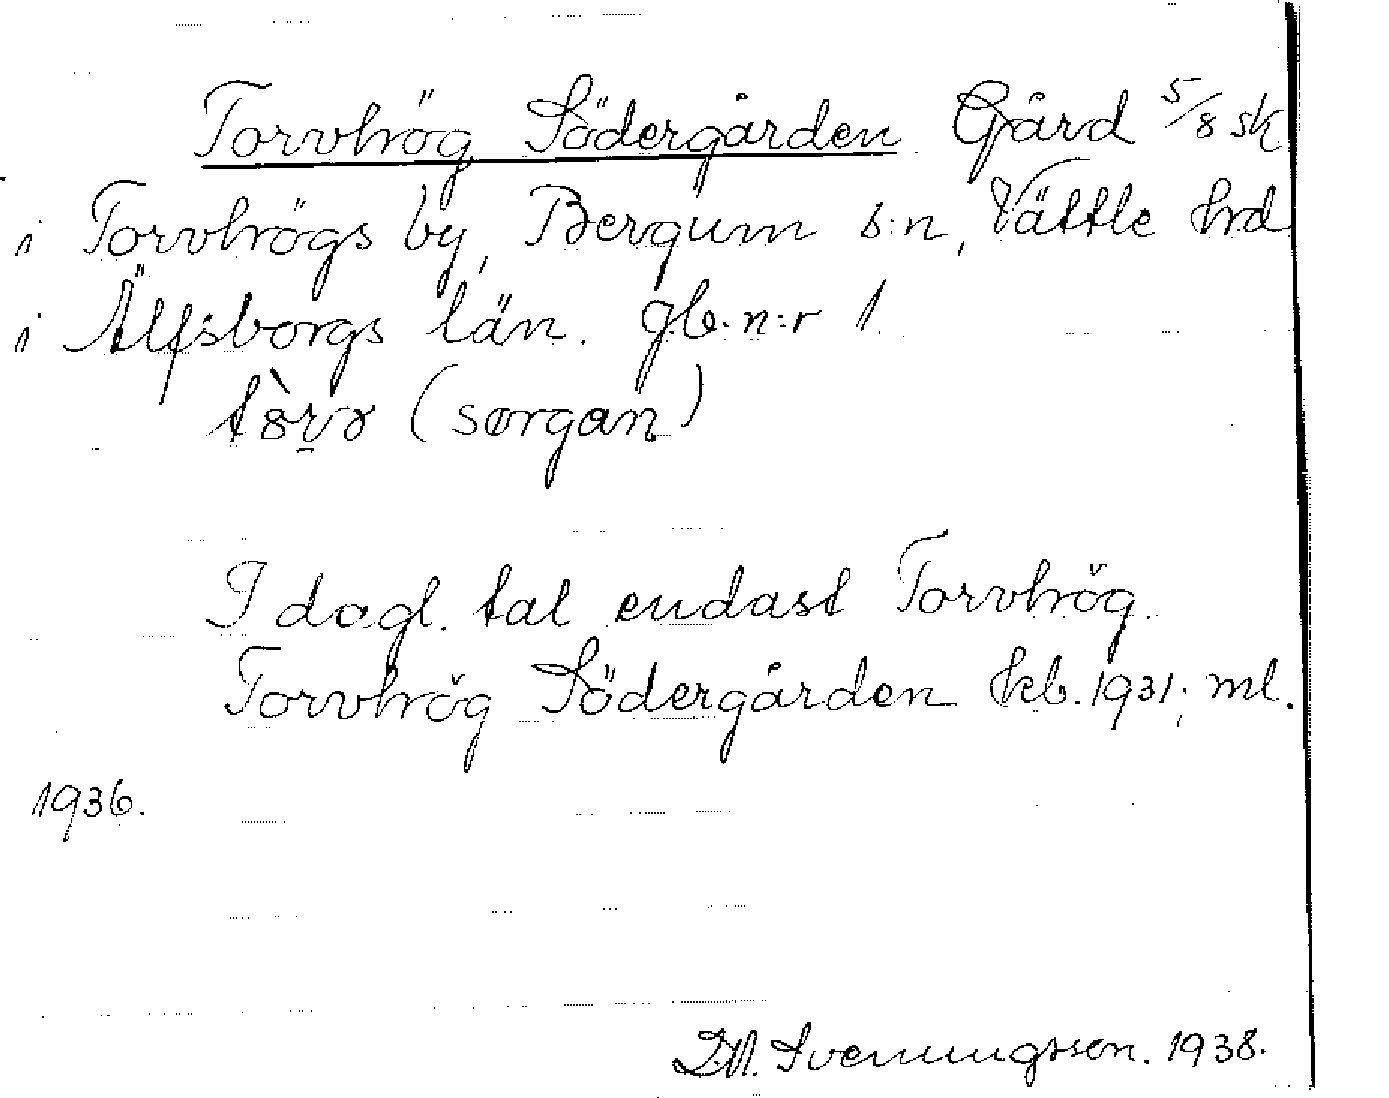 Torvhög Södergården. Gård 5/8 sk
i Torvhögs by, Bergum s:n, Vättle hrd
i Älfsborgs län. gb. n:r 1.
(sørgan)
I dagl. tal endast Torvhög.
Torvhög Södergården kb. 1931; ml.
1936.
Svenungsson. 1938.